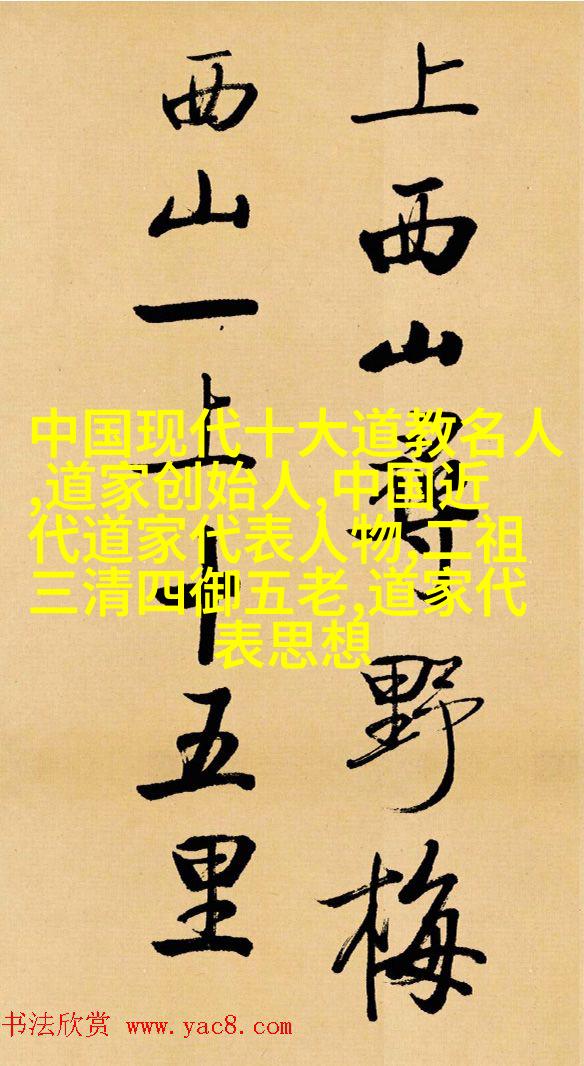 上西山尋野梅
西山一上十五里
中国现代十大道教名人
,道家创始人,中国近
代道家代表人物,二祖
三清四御五老,道家代
表思想
书法欣赏 www.yac8.com